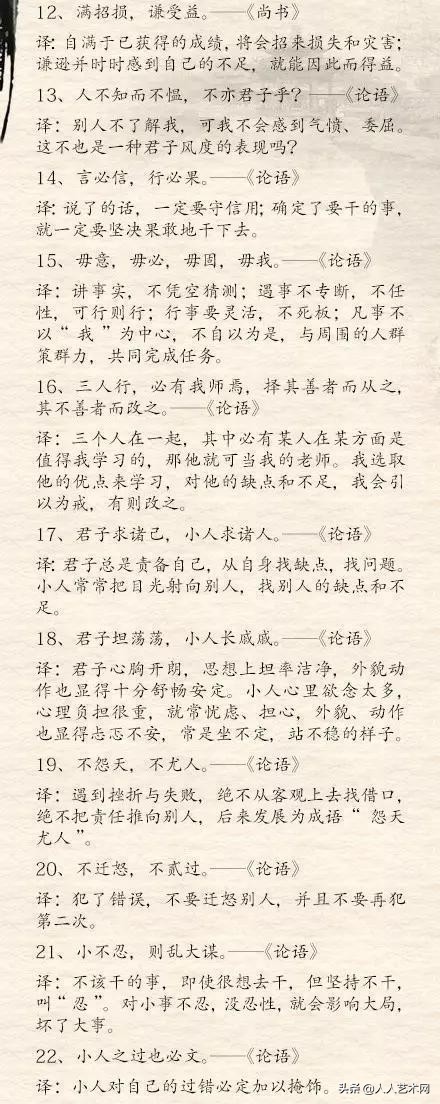 12、满招损，谦受益。——《尚书》
译：自满于已获得的成绩，将会招来损失和灾害；
谦逊并时时感到自己的不足，就能因此而得益。
13、人不知而不愠，不亦君子乎？——《论语》
译：别人不了解我，可我不会感到气愤、委屈。
这不也是一种君子风度的表现吗？
14、言必信，行必果。——《论语》
译：说了的话，一定要守信用；确定了要干的事，
就一定要坚决果敢地干下去。
15、毋意，毋必，毋固，毋我。——《论语》
译：讲事实，不凭空猜测；遇事不专断，不任
性，可行则行；行事要灵活，不死板；凡事不
以“我”为中心，不自以为是，与周围的人群
策群力，共同完成任务。
16、三人行，必有我师焉，择其善者而从之，
其不善者而改之。——《论语》
译：三个人在一起，其中必有某人在某方面是
值得我学习的，那他就可当我的老师。我选取
他的优点来学习，对他的缺点和不足，我会引
以为戒，有则改之。
17、君子求诸己，小人求诸人。——《论语》
译：君子总是责备自己，从自身找缺点，找问题。
小人常常把目光射向别人，找别人的缺点和不
足。
18、君子坦荡荡，小人长戚戚。——《论语》
译：君子心胸开朗，思想上坦率洁净，外貌动
作也显得十分舒畅安定。小人心里欲念太多，
心理负担很重，就常忧虑、担心，外貌、动作
也显得忐忑不安，常是坐不定，站不稳的样子。
19、不怨天，不尤人。——《论语》
译：遇到挫折与失败，绝不从客观上去找借口，
绝不把责任推向别人，后来发展为成语“怨天
尤人”。
20、不迁怒，不贰过。——《论语》
译：犯了错误，不要迁怒别人，并且不要再犯
第二次。
21、小不忍，则乱大谋。——《论语》
译：不该干的事，即使很想去干，但坚持不干，
叫“忍”。对小事不忍，没忍性，就会影响大局，
坏了大事。
22、小人之过也必文。——《论语》
译：小人对自己的过错必定加以掩饰。
头条@人人艺术网